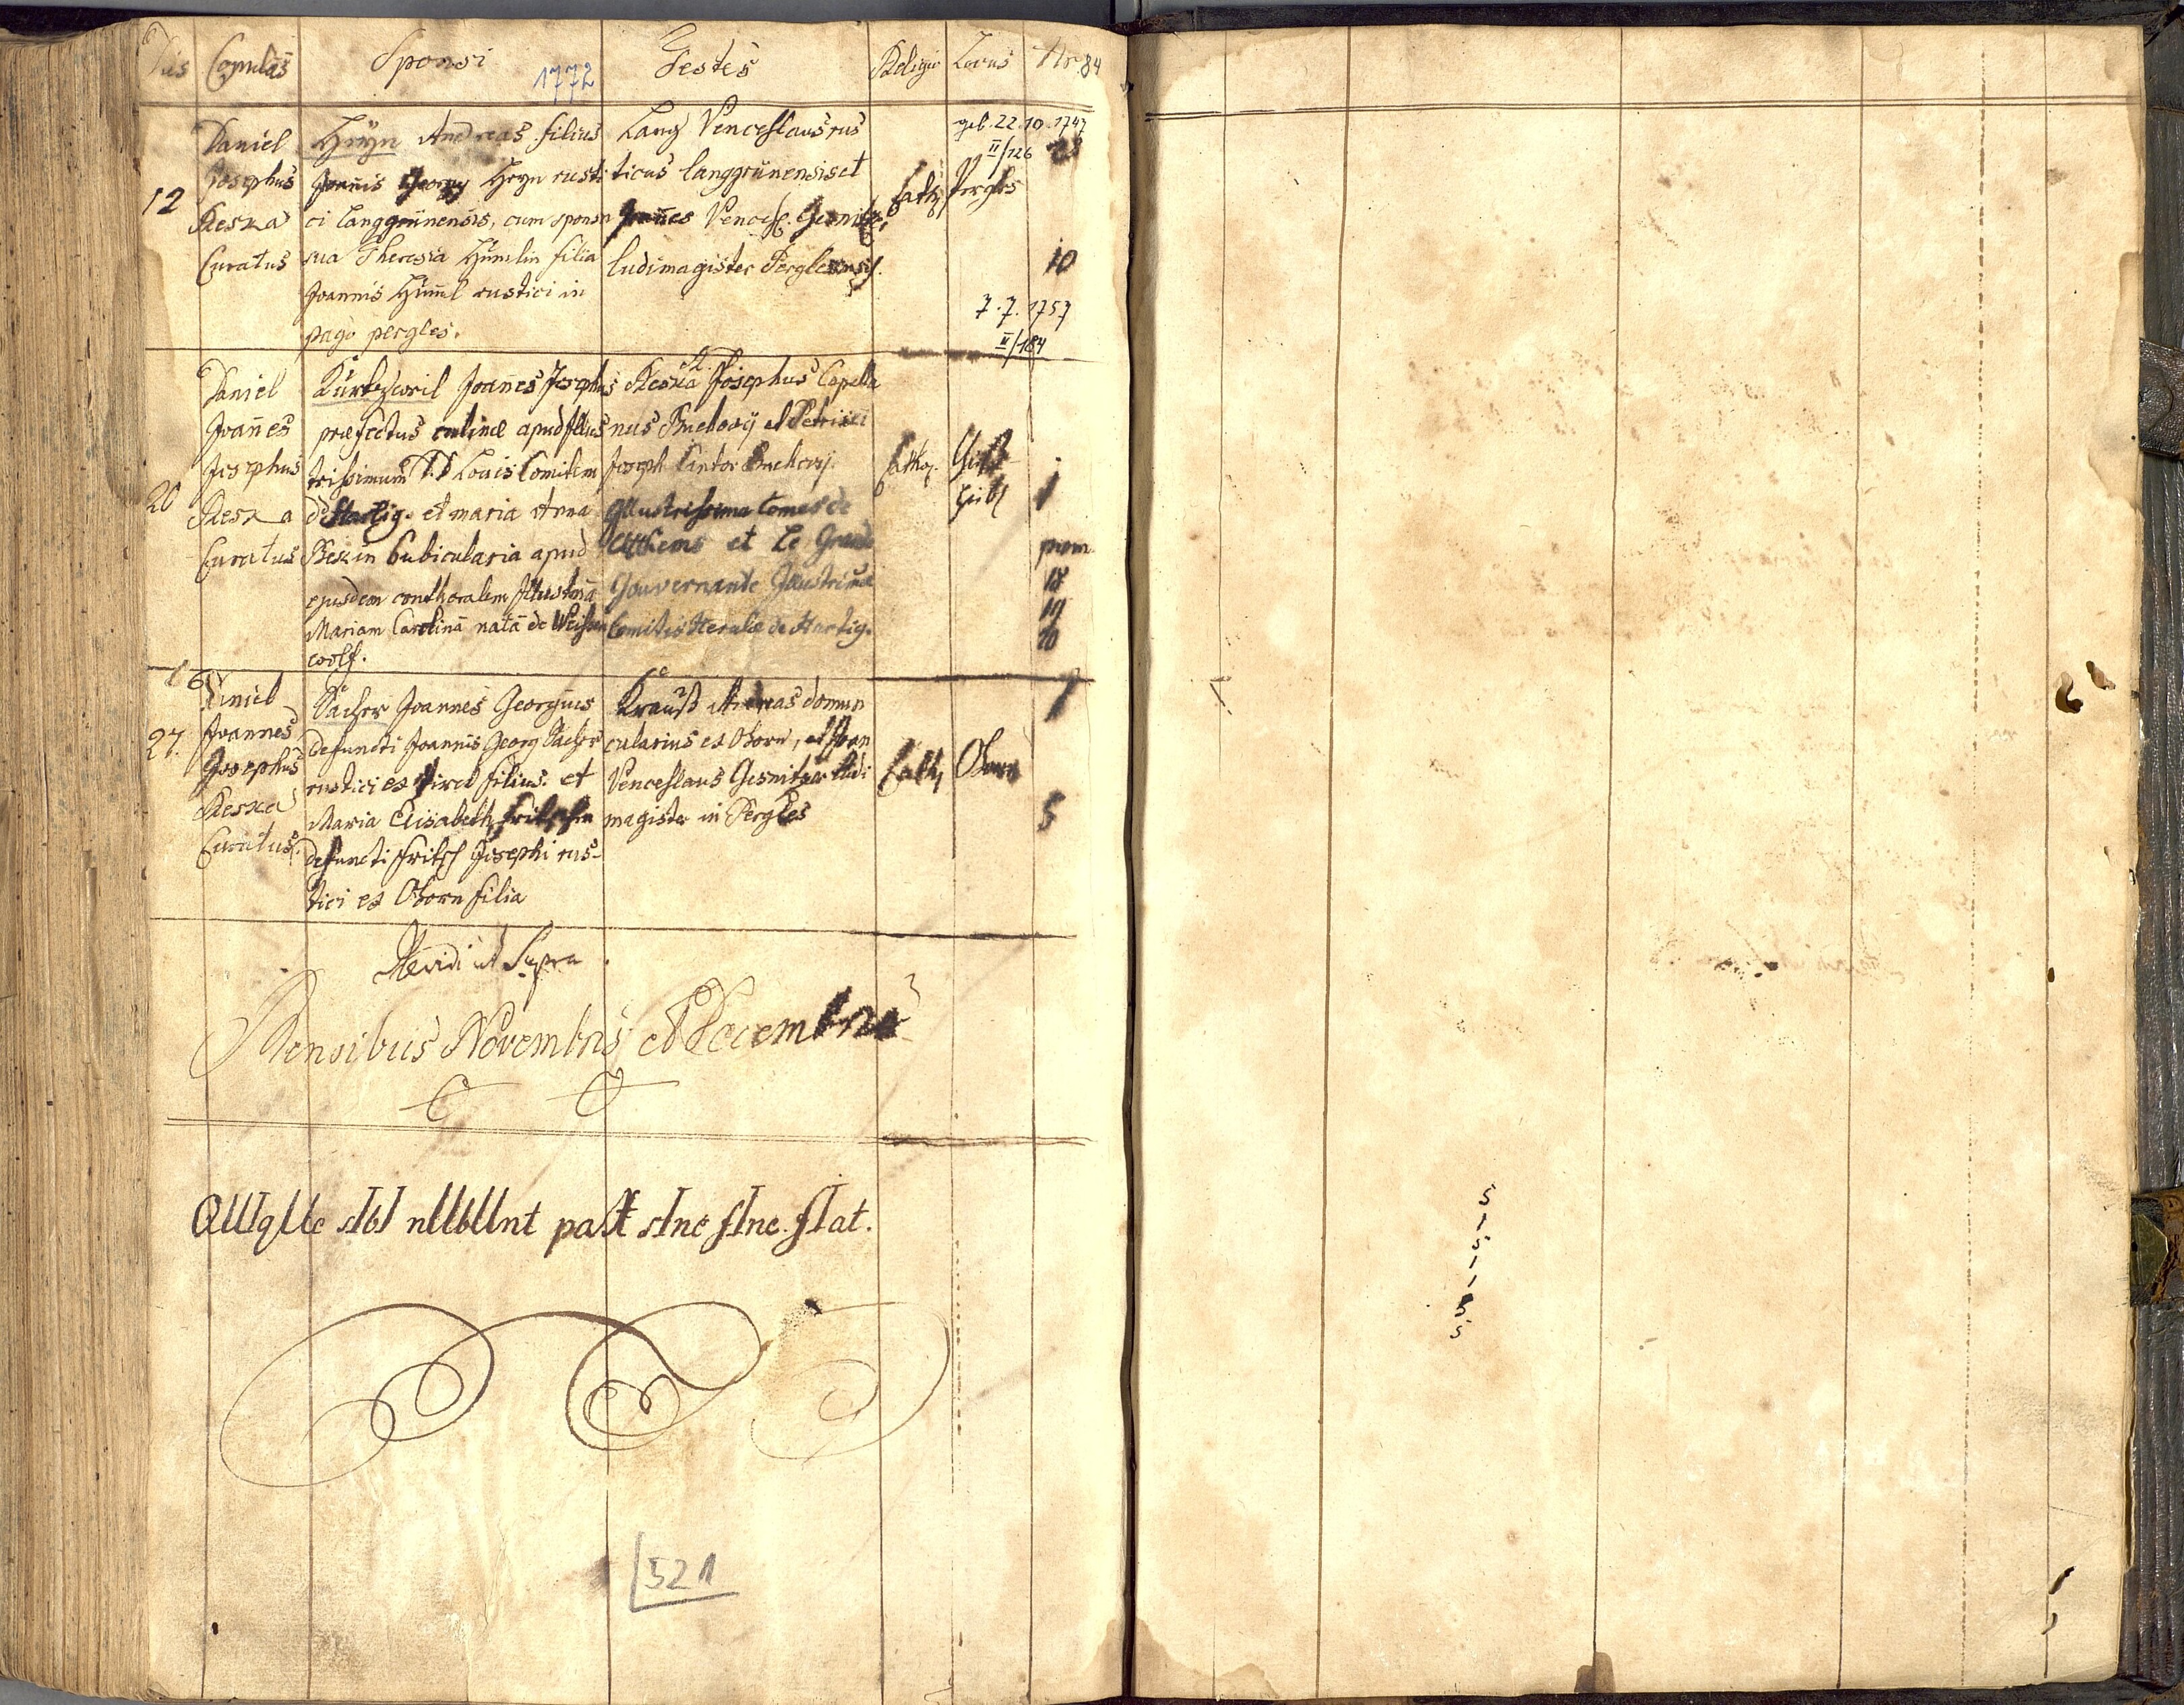 Dies Copulãs Sponsi 1772 Testes Religio Locus Nr. 84
12
Daniel
Josephus
Reska
Curatus
Heÿn Andreas filius
Joañis Georgy Heyn rusti
ci langgrünensis, cum sponsa
sua Theresia Hümlin filia
Joannis Hüml rustici in
pago pergles.
Lang Venceslaus rus
ticus langgrünensis et
Joañes Vencesl. Gesnitzer
ludimagister Perglensis.
Cath.
geb. 22.10.1747
II/126
Pergles
7.7.1757
II/184
10
20
Daniel
Joañes
Josephus
Reska
Curatus
Joañes Josephus
præfectus culinæ apud Illus
trissimum D.D Louis Comitem
de Hartig. et maria Anna
Bexin Cubicularia apud
ejusdem conthoralem
Mariam Carolinã natã de Weissen
wolf.
Reska Josephus Capella
nus Buchovij et
Joseph Cantor Buchovij.
Illustrissima Comes de
Atthems et Le Grand
Gouvernante
Comitis de Hartig.
Cathol.
Gies
hübl
1
prom.
18
19
20
27.
Daniel
Joannes
Josephus
Reska
Curatus.
Pacher Joannes Georgius
defuncti Joannis Georg Pacher
rustici ex filius. et
Maria Elisabeth Fritschin
defuncti Fritsch Josephi rus-
tici ex Ohorn filia
Krauß Andreas domun
cularius ex Ohorn, et Joan
Venceslaus Gesnitzer ludi
magister in Pergles
Cath.
Ohorn
5
Revidi ut Supra.
Mensibus Novembris et Decembris
QUIqUe sIbI nUbUnt paX sIne fIne. fIat.
521
5
1
5
1
1
5
5